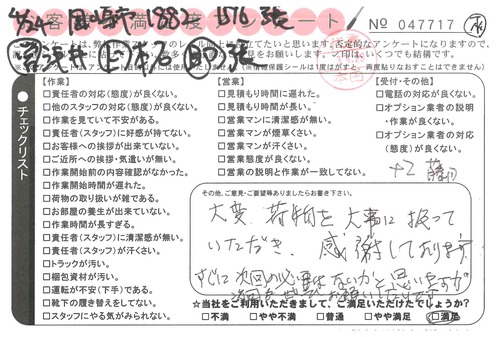 4/24
お客様満足度アンケート
No 047717
チェックリスト
【作業】
□責任者の対応(態度)が良くない。
□他のスタッフの対応(態度)が良くない。
□作業を見ていて不安がある。
□責任者(スタッフ)に好感が持てない。
□お客様への挨拶が出来ていない。
□ご近所への挨拶・気遣いが無い。
□作業開始前の内容確認がなかった。
□作業開始時間が遅れた。
□荷物の取り扱いが雑である。
□お部屋の養生が出来ていない。
□作業時間が長すぎる。
□責任者(スタッフ)に清潔感が無い。
□責任者(スタッフ)が汗くさい。
□トラックが汚い。
□梱包資材が汚い。
□運転が不安(下手)である。
□靴下の履き替えをしてない。
□スタッフにやる気がみられない。
【営業】
□見積もり時間に遅れた。
□見積もり時間が長い。
□営業マンに清潔感が無い。
□営業マンが煙草くさい。
□営業マンが汗くさい。
□営業態度が良くない。
□営業の説明と作業が一致してない。
【受付・その他】
□電話の対応が良くない。
□オプション業者の説明
・作業が良くない。
□オプション業者の対応
(態度)が良くない。
その他、ご意見・ご要望等ありましたらお書き下さい。
大変、荷物を大事に扱って
いただき、感謝しております。
すぐに次回の必要はないかと思いますが
☆当社をご利用いただきまして、ご満足いただけたでしょうか?
□不満 □やや不満 □普通 □やや満足 □満足